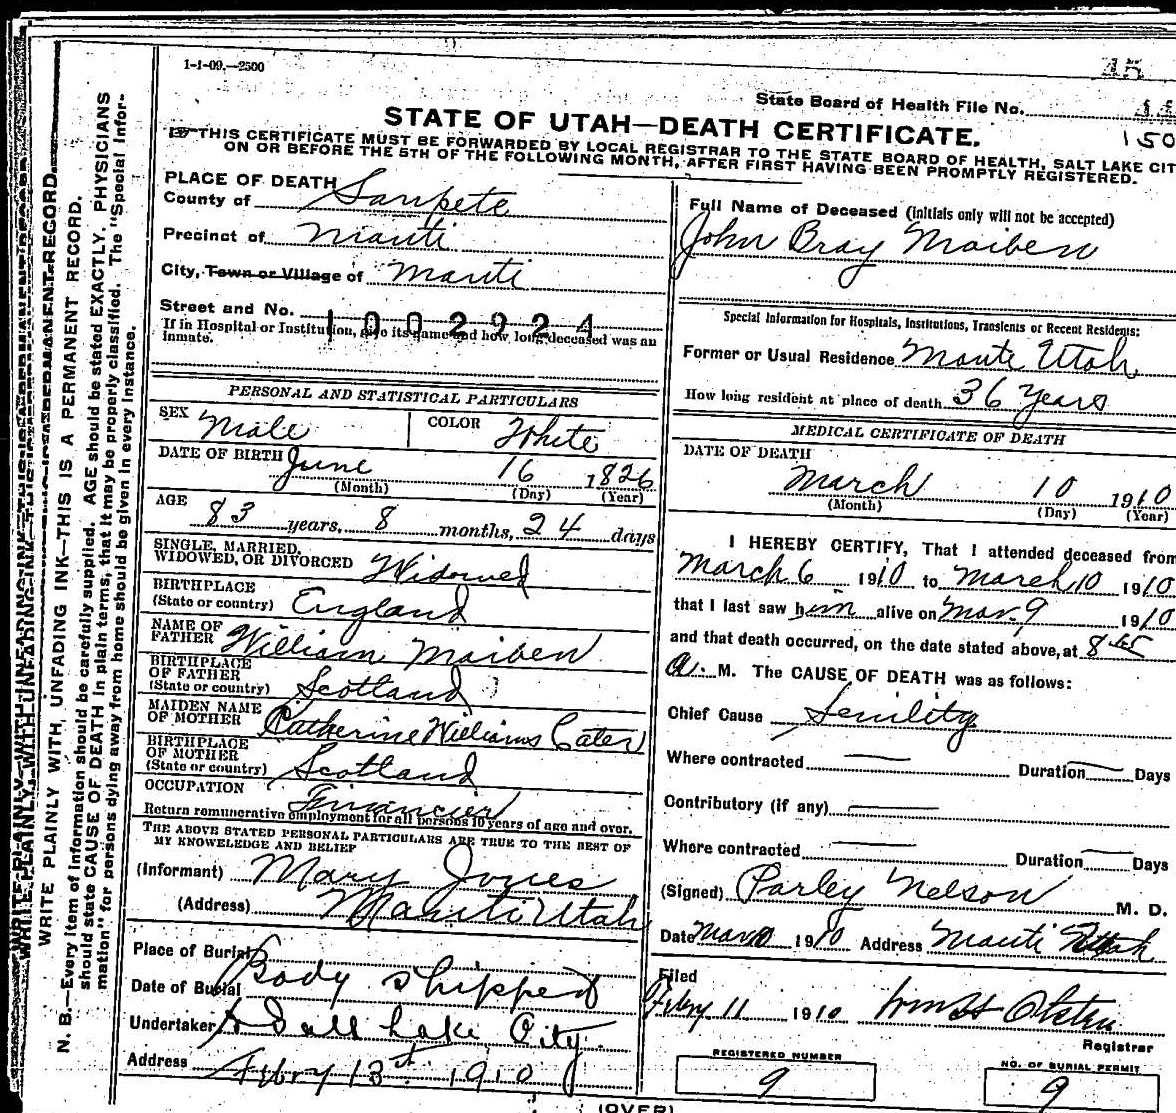 1-1-09.—2500
State Board of Health File No.
150
STATE OF UTAH—DEATH CERTIFICATE.
THIS CERTIFICATE MUST BE FORWARDED BY LOCAL REGISTRAR TO THE STATE BOARD OF HEALTH, SALT LAKE CIT
ON OR BEFORE THE 5TH OF THE FOLLOWING MONTH, AFTER FIRST HAVING BEEN PROMPTLY REGISTERED.
WRITE PLAINLY WITH UNFADING INK—THIS IS A PERMANENT RECORD.
N. B.—Every item of information should be carefully supplied. AGE should be stated EXACTLY. PHYSICIANS
should state CAUSE OF DEATH in plain terms, that it may be properly classified. The "Special Infor-
mation" for persons dying away from home should be given in every instance.
PLACE OF DEATH
County of Sanpete
Precinct of Manti
City, Town or Village of Manti
Street and No.
1002924
If in Hospital or Institution, give its name and how long deceased was an
inmate.
PERSONAL AND STATISTICAL PARTICULARS
SEX Male COLOR White
DATE OF BIRTH June 16 1826
(Month) (Day) (Year)
AGE
83 years, 8 months, 24 days
SINGLE, MARRIED,
WIDOWED, OR DIVORCED Widowed
BIRTHPLACE
(State or country) England
NAME OF
FATHER William Maiben
BIRTHPLACE
OF FATHER
(State or country) Scotland
MAIDEN NAME
OF MOTHER Catherine Williams Cater
BIRTHPLACE
OF MOTHER
(State or country) Scotland
OCCUPATION
Financier
Return remunerative employment for all persons 10 years of age and over.
THE ABOVE STATED PERSONAL PARTICULARS ARE TRUE TO THE BEST OF
MY KNOWELEDGE AND BELIEF
(Informant) Mary Jones
(Address) Manti Utah
Place of Burial Body Shipped
Date of Burial
Undertaker to Salt Lake City.
Address Febry 13th 1910
Full Name of Deceased (Initials only will not be accepted)
John Bray Maiben
Special Information for Hospitals, Institutions, Transients or Recent Residents:
Former or Usual Residence Monte Utah
How long resident at place of death 36 Years
MEDICAL CERTIFICATE OF DEATH
DATE OF DEATH
March 10 1910
(Month) (Day) (Year)
I HEREBY CERTIFY, That I attended deceased from
March 6 1910 to March 10 1910
that I last saw him alive on Mar. 9 1910
and that death occurred, on the date stated above, at 8
A. M. The CAUSE OF DEATH was as follows:
Chief Cause Senility
Where contracted Duration Days
Contributory (if any)
Where contracted Duration Days
(Signed) Parley Nelson M. D.
Date Mar 10 1910 Address Manti Utah
Filed
Febry 11 1910
Registrar
REGISTERED NUMBER
9
NO. OF BURIAL PERMIT
9
(OVER)